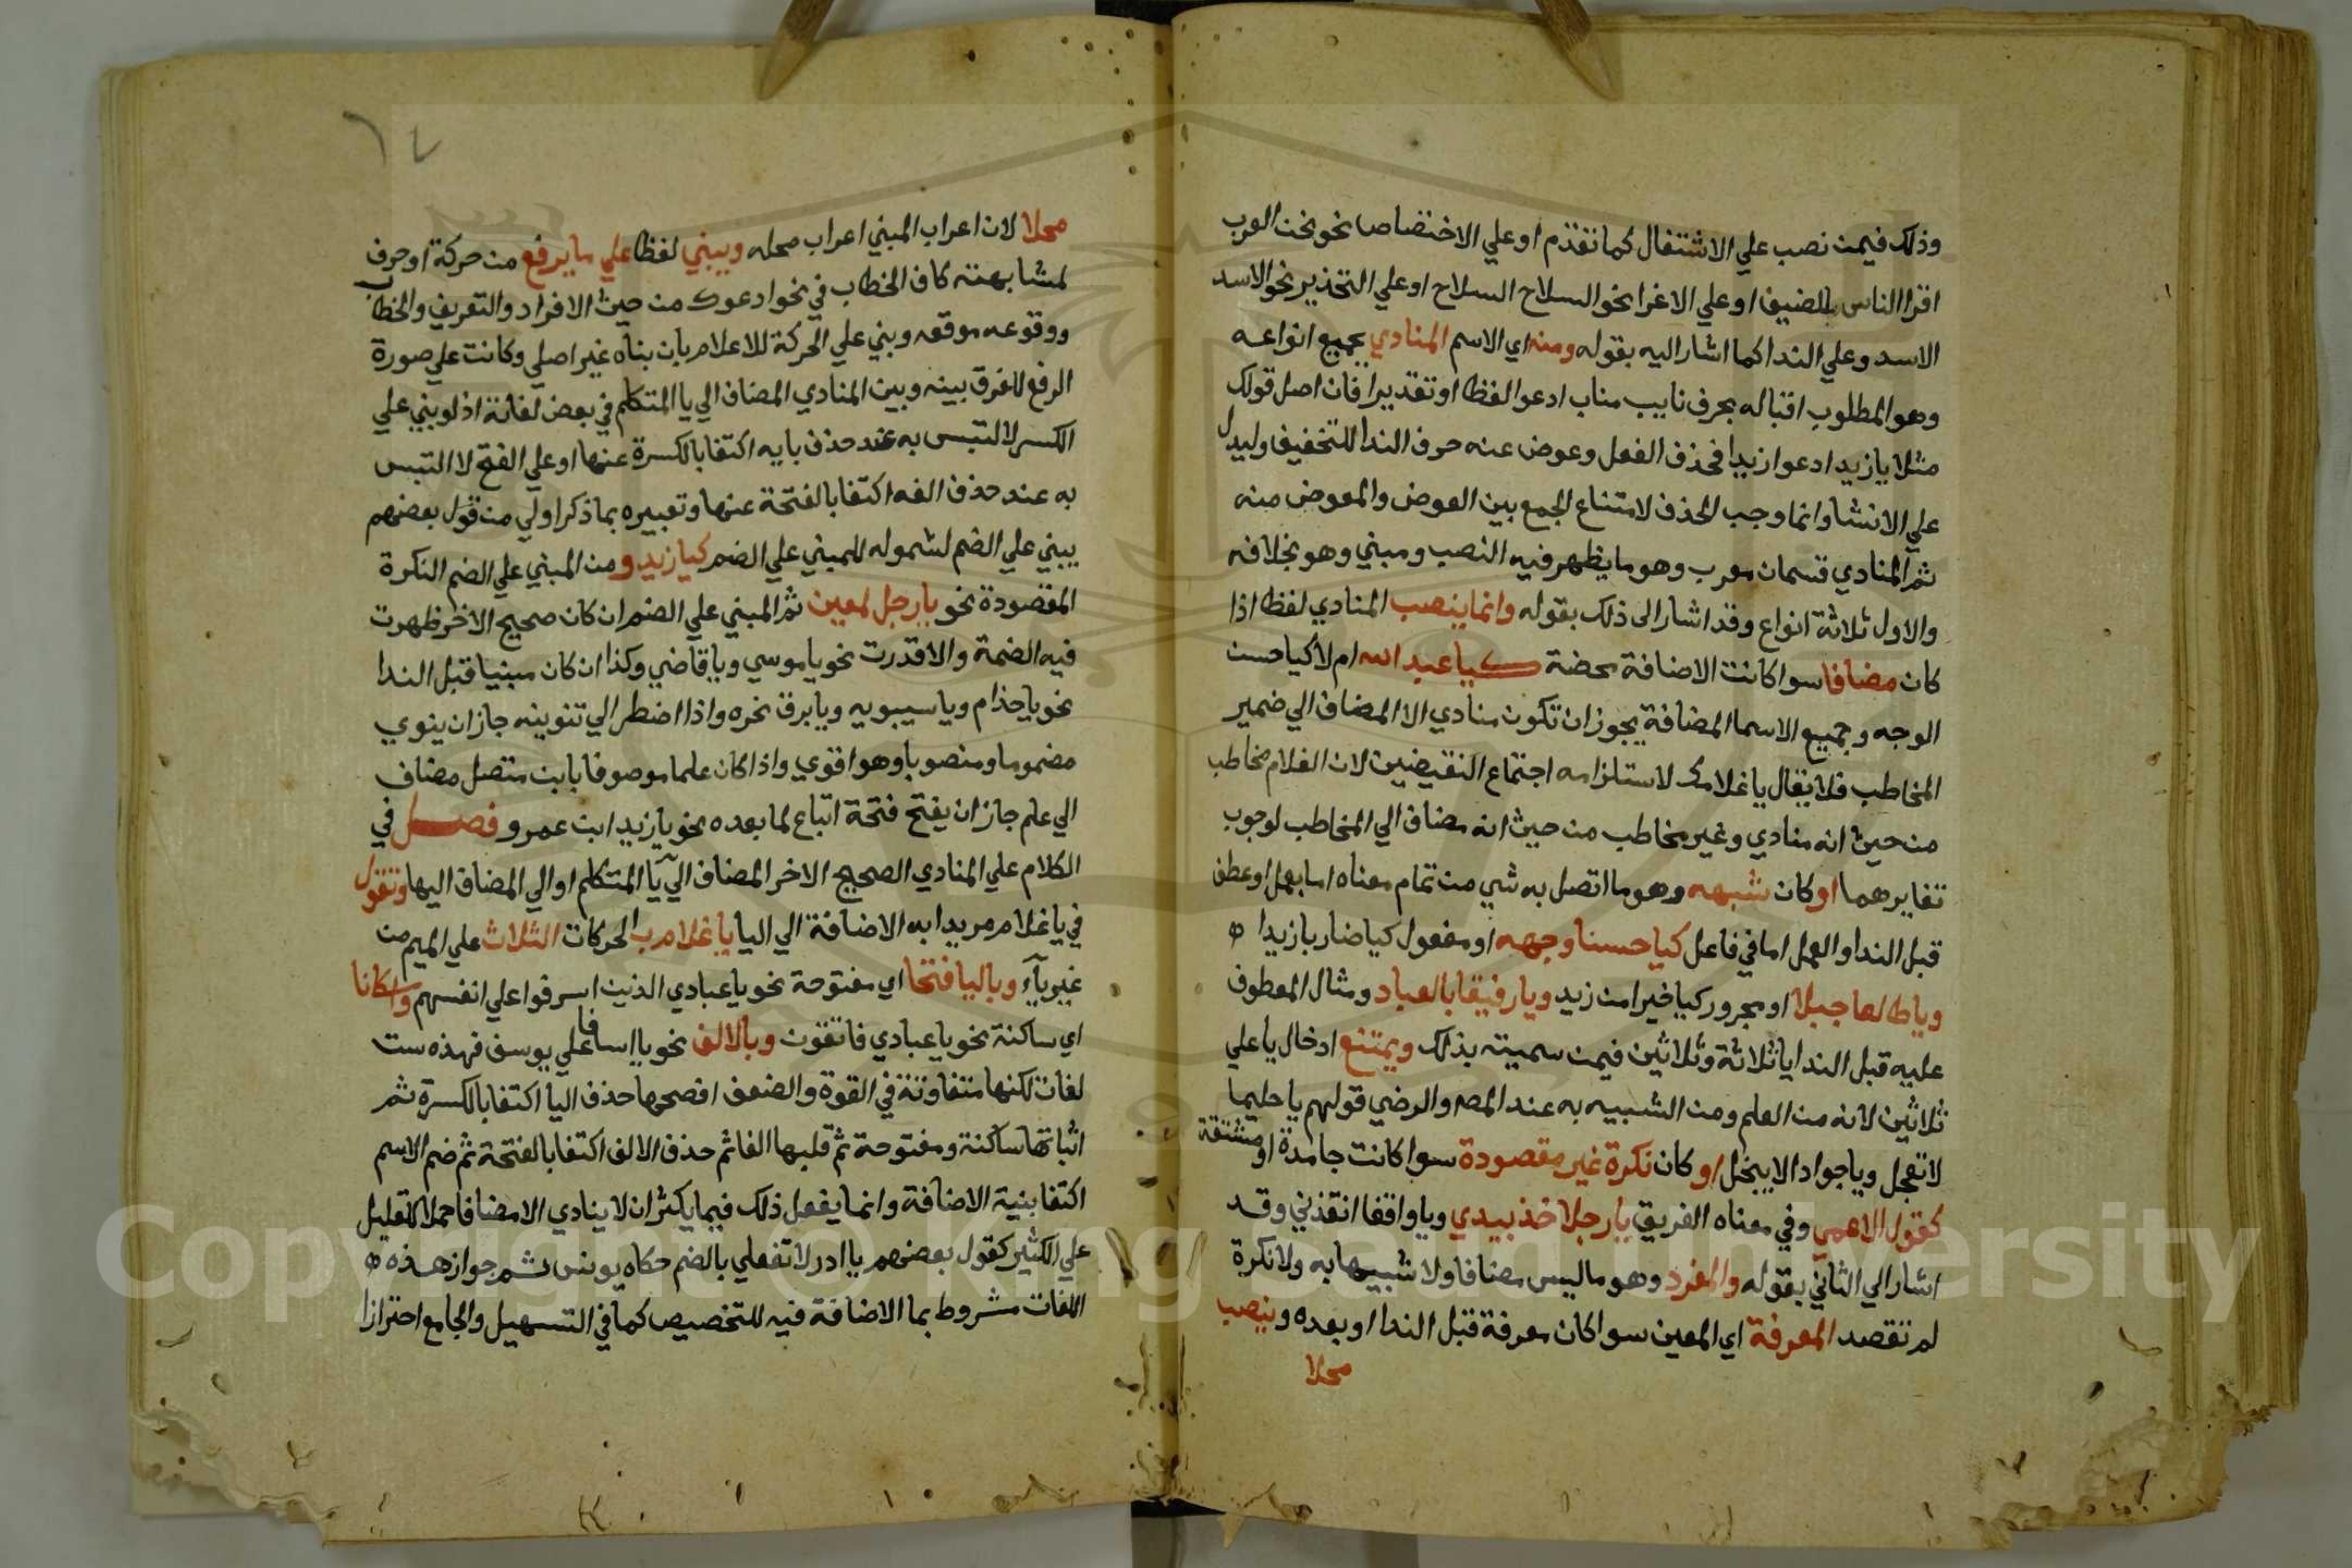 وذلك فيمن نصب علي الاشتغال كما تقدم او علي الاختصاص نحو نحن العرب
اقرا الناس للضيف او علي الاغرا نحو السلاح السلاح او علي التحذير نحو الاسد
الاسد وعلي الندا كما اشار اليه بقوله ومنه اي الاسم المنادي بجميع انواعه
وهو المطلوب اقباله بحرف نايب مناب ادعو الفظا او تقديرا فان اصل قولك
مثلا يا زيد ادعوا زيدا فحذف الفعل وعوض عنه حرف الندا للتخفيف وليدل
علي الانشا وانما وجب الحذف لامتناع الجمع بين العوض والمعوض منه
ثم المنادي قسمان معرب وهو ما يظهر فيه النصب ومبني وهو بخلافه
والاول ثلاثة انواع وقد اشار الى ذلك بقوله وانما ينصب المنادي لفظا اذا
كان مضافا سوا كانت الاضافة محضة كيا عبد الله ام لا كيا حسن
الوجه وجميع الاسما المضافة يجوز ان تكون منادي الا المضاف الي ضمير
المخاطب فلا يقال يا غلامك لاستلزامه اجتماع النقيضين لان الغلام مخاطب
من حيث انه منادي وغير مخاطب من حيث انه مضاف الي المخاطب لوجوب
تغايرهما او كان شبهه وهو ما اتصل به شي من تمام معناه اما بعمل او عطف
قبل الندا والعمل اما في فاعل كيا حسنا وجهه او مفعول كيا ضاربا زيدا ه
ويا طالعا جبلا او مجرور كيا خيرا من زيد ويا رفيقا بالعباد ومثال المعطوف
عليه قبل الندا يا ثلاثة وثلاثين فيمن سميته بذلك ويمتنع ادخال يا علي
ثلاثين لانه من العلم ومن الشبيه به عند المص والرضي قولهم يا حليما
لا تعجل ويا جواد الا يبخل او كان نكرة غير مقصودة سوا كانت جامدة او مشتقة
كقول الاعمي وفي معناه الغريق يا رجلا خذ بيدي ويا واقفا انقذني وقد
اشار الي الثاني بقوله والمفرد وهو ما ليس مضافا ولا شبيها به ولا نكرة
لم تقصد المعرفة اي المعين سوا كان معرفة قبل الندا او بعده وينصب
محلا
١٧
محلا لان اعراب المبني اعراب محله ويبني لفظا علي ما يرفع من حركة او حرف
لمشابهته كاف الخطاب في نحو ادعوك من حيث الافراد والتعريف والخطاب
ووقوعه موقعه وبني علي الحركة للاعلام بان بناه غير اصلي وكانت علي صورة
الرفع للفرق بينه وبين المنادي المضاف الي يا المتكلم في بعض لغاتة اذ لو بني علي
الكسر لالتبس به عند حذف يايه اكتفا بالكسرة عنها او علي الفتح لا التبس
به عند حذف الفه اكتفا بالفتحة عنها وتعبيره بما ذكر اولي من قول بعضهم
يبني علي الضم لشموله للمبني علي الضم كيا زيد ومن المبني علي الضم النكرة
المقصودة نحو يا رجل لمعين ثم المبني علي الضم ان كان صحيح الاخر ظهرت
فيه الضمة والا قدرت نحو يا موسي ويا قاضي وكذا ان كان مبنيا قبل الندا
نحو يا حذام ويا سيبويه ويا برق نحره واذا اضطر الي تنوينه جاز ان ينوي
مضموما ومنصوبا وهو اقوي واذا كان علما موصوفا بابن متصل مضاف
الي علم جاز ان يفتح فتحة اتباع لما بعده نحو يا زيد ابن عمرو فصل في
الكلام علي المنادي الصحيح الاخر المضاف الي يا المتكلم او الي المضاف اليها وتقول
في يا غلام مريدا به الاضافة الي اليا يا غلام ب الحركات الثلاث علي الميم من
غير ياء وباليا فتحا اي مفتوحة نحو يا عبادي الذين اسرفوا علي انفسهم واسكانا
اي ساكنة نحو يا عبادي فاتقون وبالالف نحو يا اسفا علي يوسف فهذه ست
لغات لكنها متفاوتة في القوة والضعف افصحها حذف اليا اكتفا بالكسرة ثم
اثباتها ساكنة ومفتوحة ثم قلبها الفا ثم حذف الالف اكتفا بالفتحة ثم ضم الاسم
اكتفا بنية الاضافة وانما يفعل ذلك فيما يكثر ان لا ينادي الا مضافا حملا للقليل
علي الكثير كقول بعضهم يا ادر لا تفعلي بالضم حكاه يونس ثم جواز هذه ه
اللغات مشروط بما الاضافة فيه للتخصيص كما في التسهيل والجامع احترازا
Copyright © King Saud University